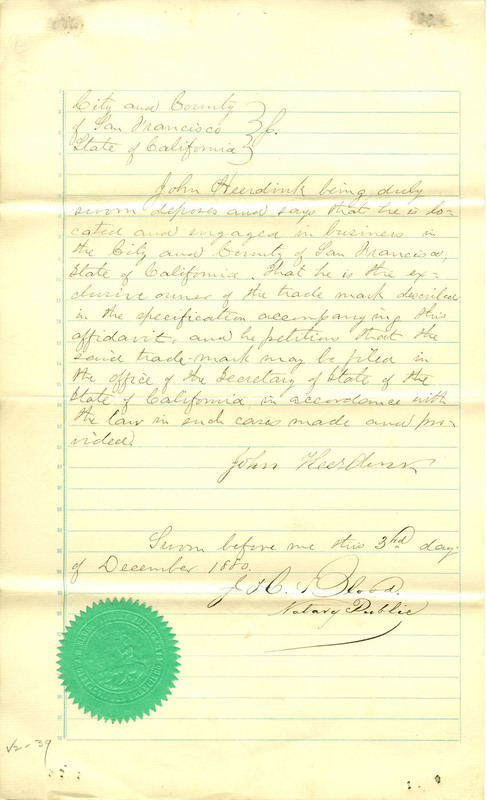 City and County
of San Francisco } ss.
State of California
John Heerdink being duly
sworn deposes and says that he is lo-
cated and engaged in business in
the City and County of San Francisco,
State of California. That he is the ex-
clusive owner of the trade mark described
in the specification accompanying this
affidavit, and he petitions that the
said trade-mark may be filed in
the office of the Secretary of State of the
State of California, in accordance with
the law in such cases made and pro-
vided.
John Heerdink
Sworn before me this 3rd day
of December 1880.
J. H. Blood.
Notary Public
V2-39